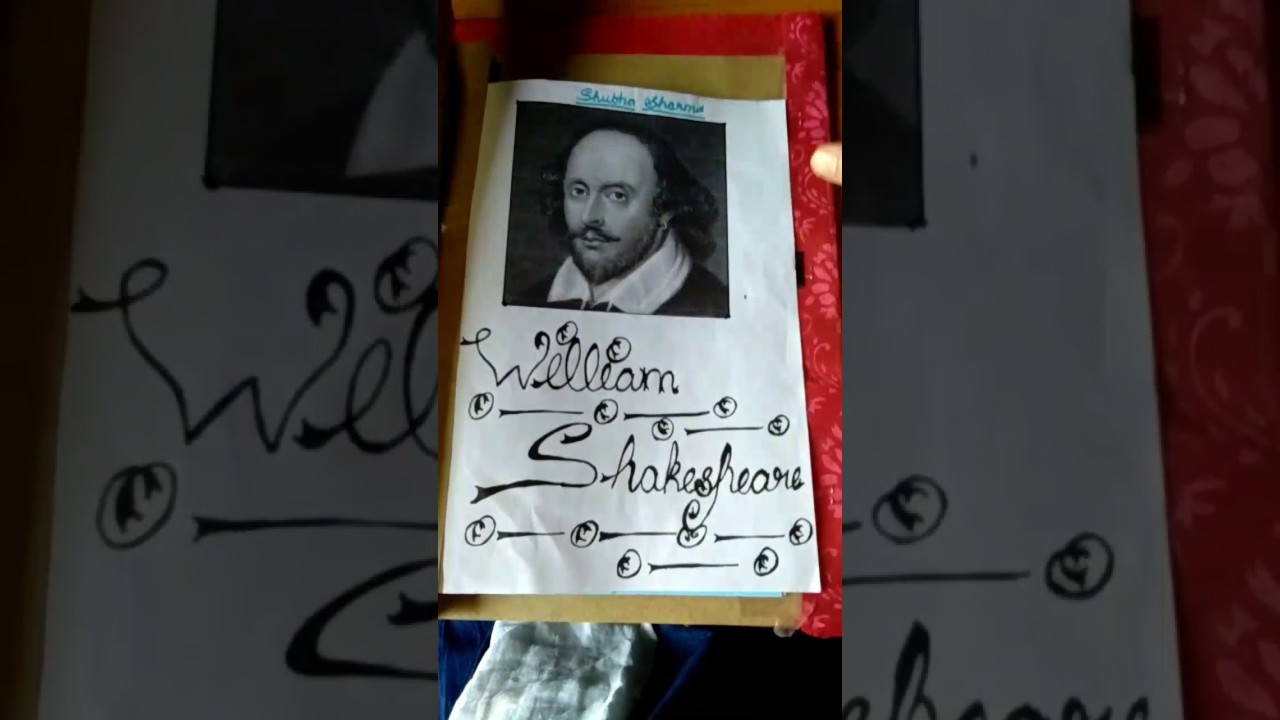 Shubha Sharma
William
Shakespeare